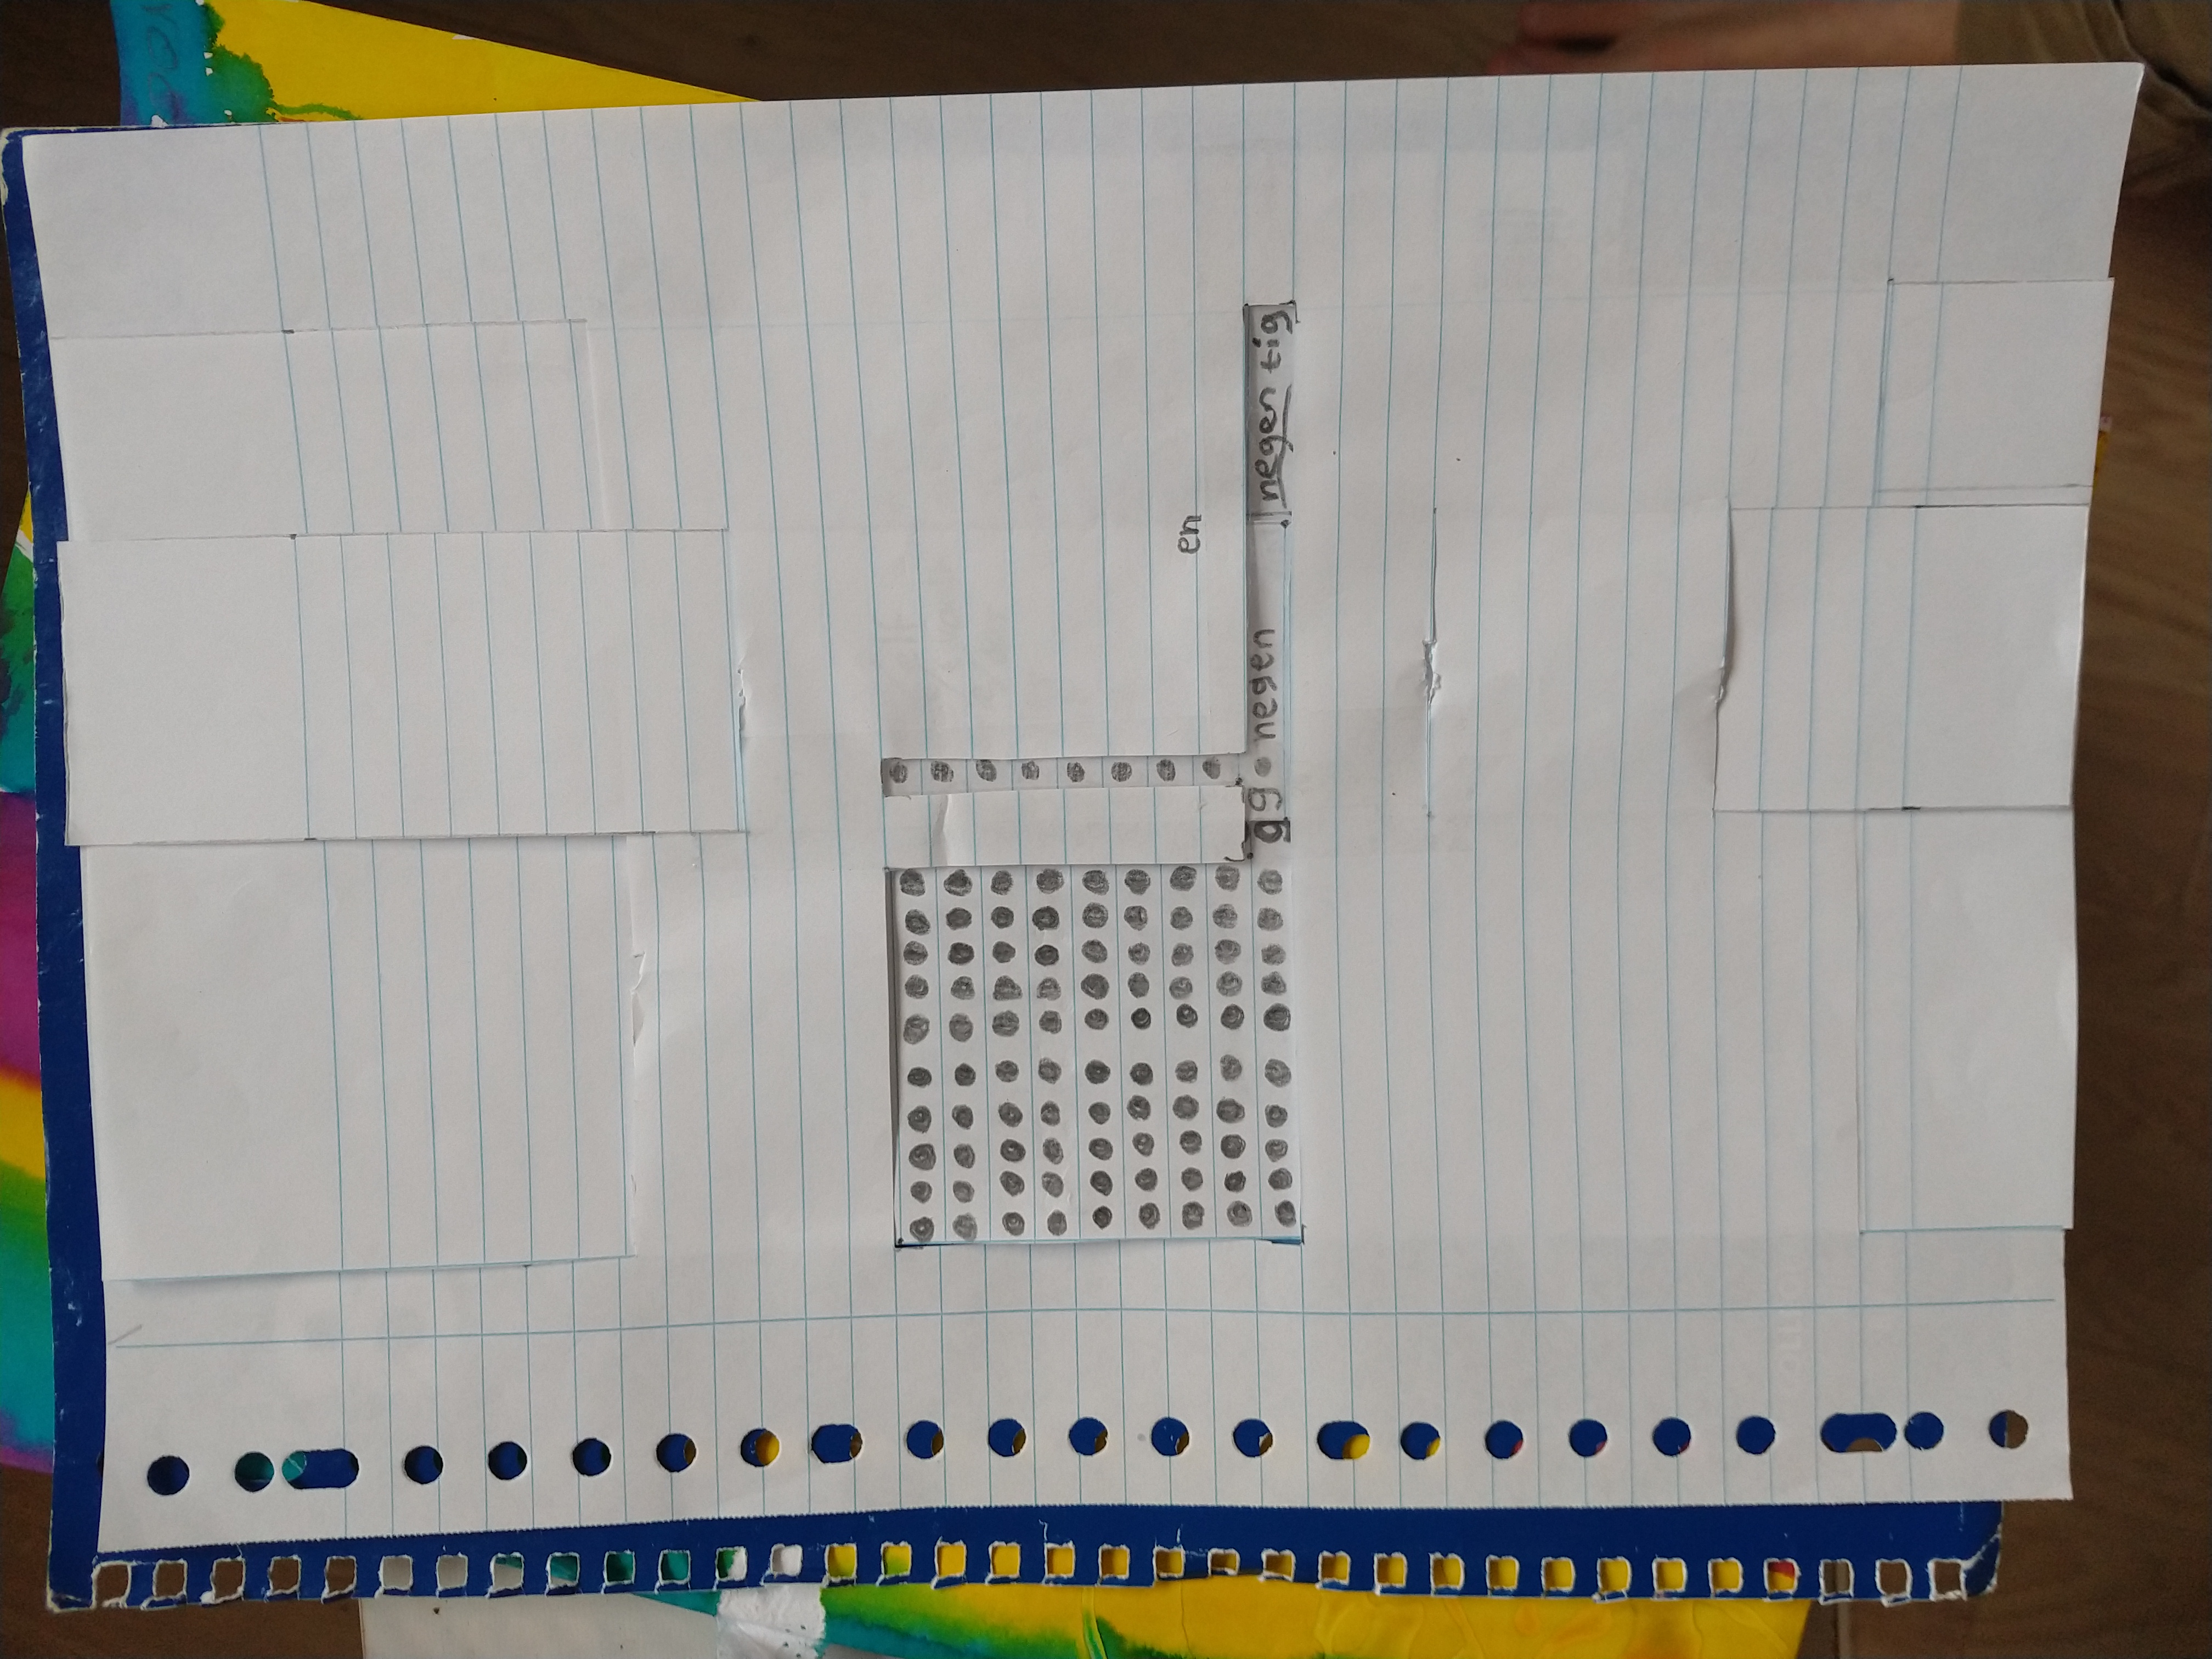 en
99 negen negentig